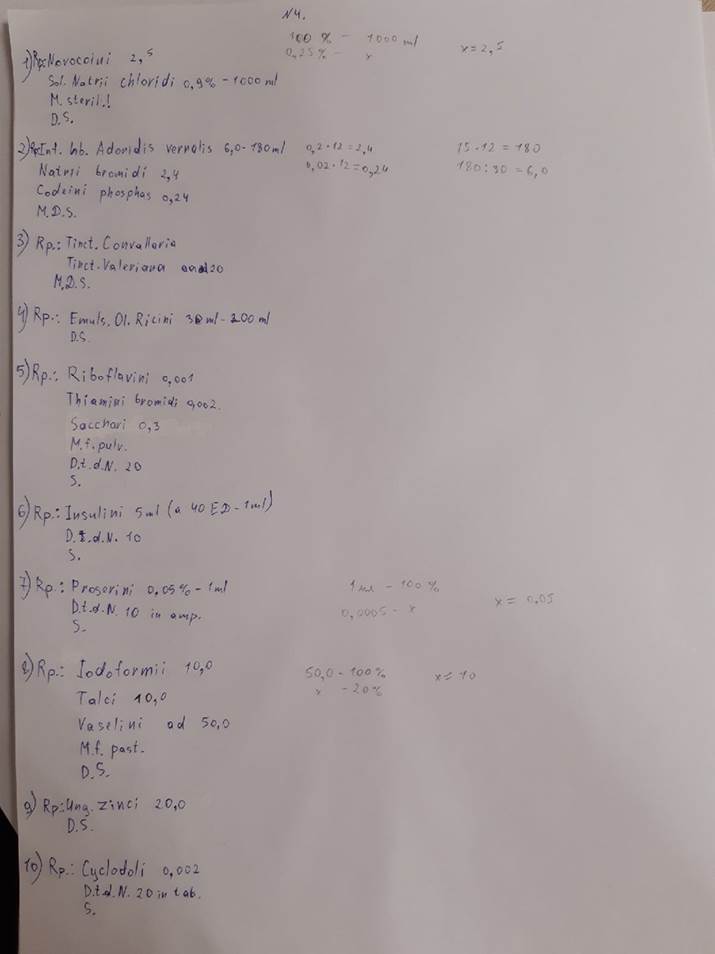 N4.
100 % - 1000 ml
0,25% - x
x = 2,5
1) Rp: Novocaini 2,5
Sol. Natrii chloridi 0,9% - 1000 ml
M. steril.!
D.S.
2) Rp: Inf. hb. Adonidis vernalis 6,0 - 180 ml
0,2 · 12 = 2,4
15 · 12 = 180
Natrii bromidi 2,4
0,02 · 12 = 0,24
180 : 30 = 6,0
Codeini phosphas 0,24
M.D.S.
3) Rp.: Tinct. Convallaria
Tinct. Valeriana 20
M.D.S.
4) Rp.: Emuls. Ol. Ricini 30 ml - 200 ml
D.S.
5) Rp.: Riboflavini 0,001
Thiamini bromidi 0,002.
Sacchari 0,3
M.f. pulv.
D.t.d.N. 20
S.
6) Rp.: Insulini 5 ml (a 40 ED - 1 ml)
D.t.d.N. 10
S.
7) Rp.: Proserini 0,05% - 1 ml
1 мл - 100 %
D.t.d.N. 10 in amp.
0,0005 - x
x = 0,05
S.
8) Rp.: Iodoformii 10,0
50,0 - 100%
x = 10
Talci 10,0
x - 20%
Vaselini ad 50,0
M.f. past.
D.S.
9) Rp: Ung. Zinci 20,0
D.S.
10) Rp.: Cyclodoli 0,002
D.t.d.N. 20 in tab.
S.